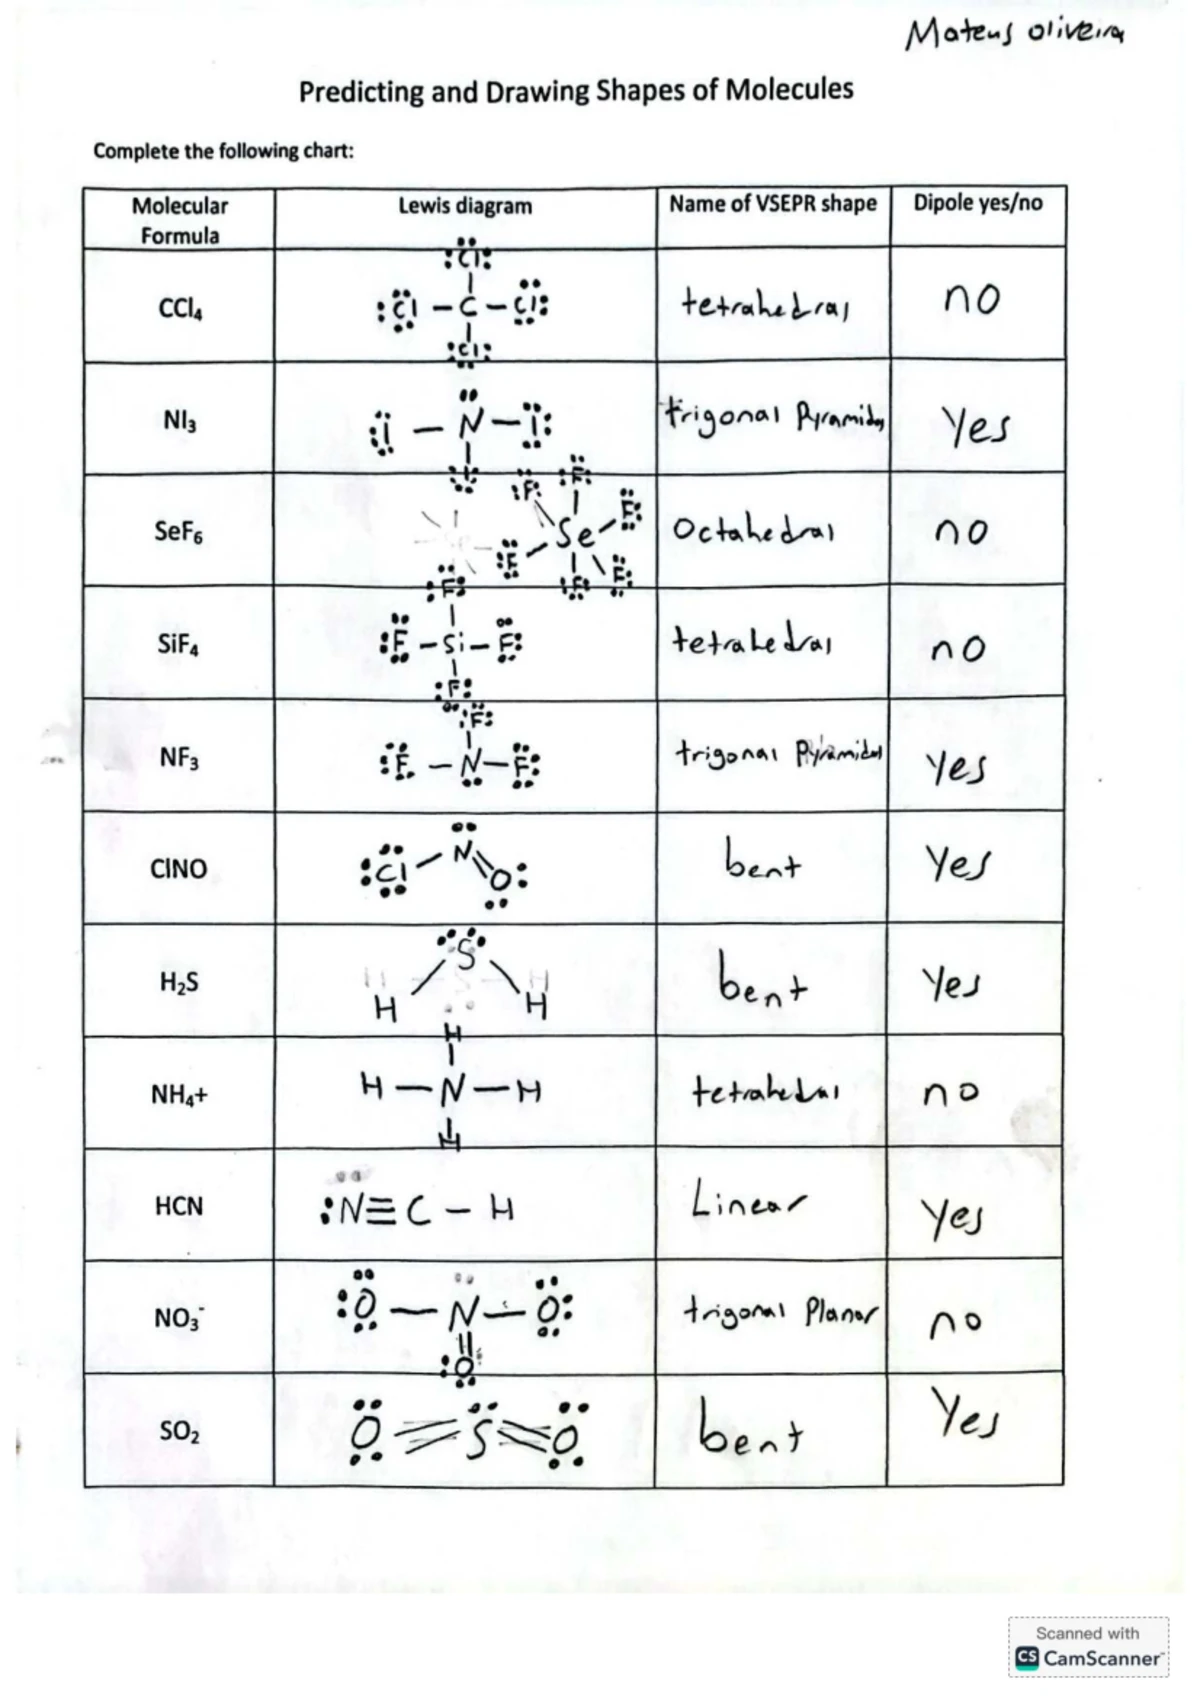 Mateus oliveira
Predicting and Drawing Shapes of Molecules
Complete the following chart:
Molecular Formula | Lewis diagram | Name of VSEPR shape | Dipole yes/no
CCl₄ | Cl Cl – C – Cl Cl | tetrahedral | no
NI₃ | I – N – I I | trigonal Pyramidal | Yes
SeF₆ | F F F Se F F F | Octahedral | no
SiF₄ | F F – Si – F F | tetrahedral | no
NF₃ | F F – N – F | trigonal Pyramidal | Yes
ClNO | Cl – N = O | bent | Yes
H₂S | S H H | bent | Yes
NH₄+ | H H – N – H H | tetrahedral | no
HCN | :N≡C – H | Linear | Yes
NO₃⁻ | O – N – O O | trigonal Planar | no
SO₂ | O = S = O | bent | Yes
Scanned with
CS CamScanner